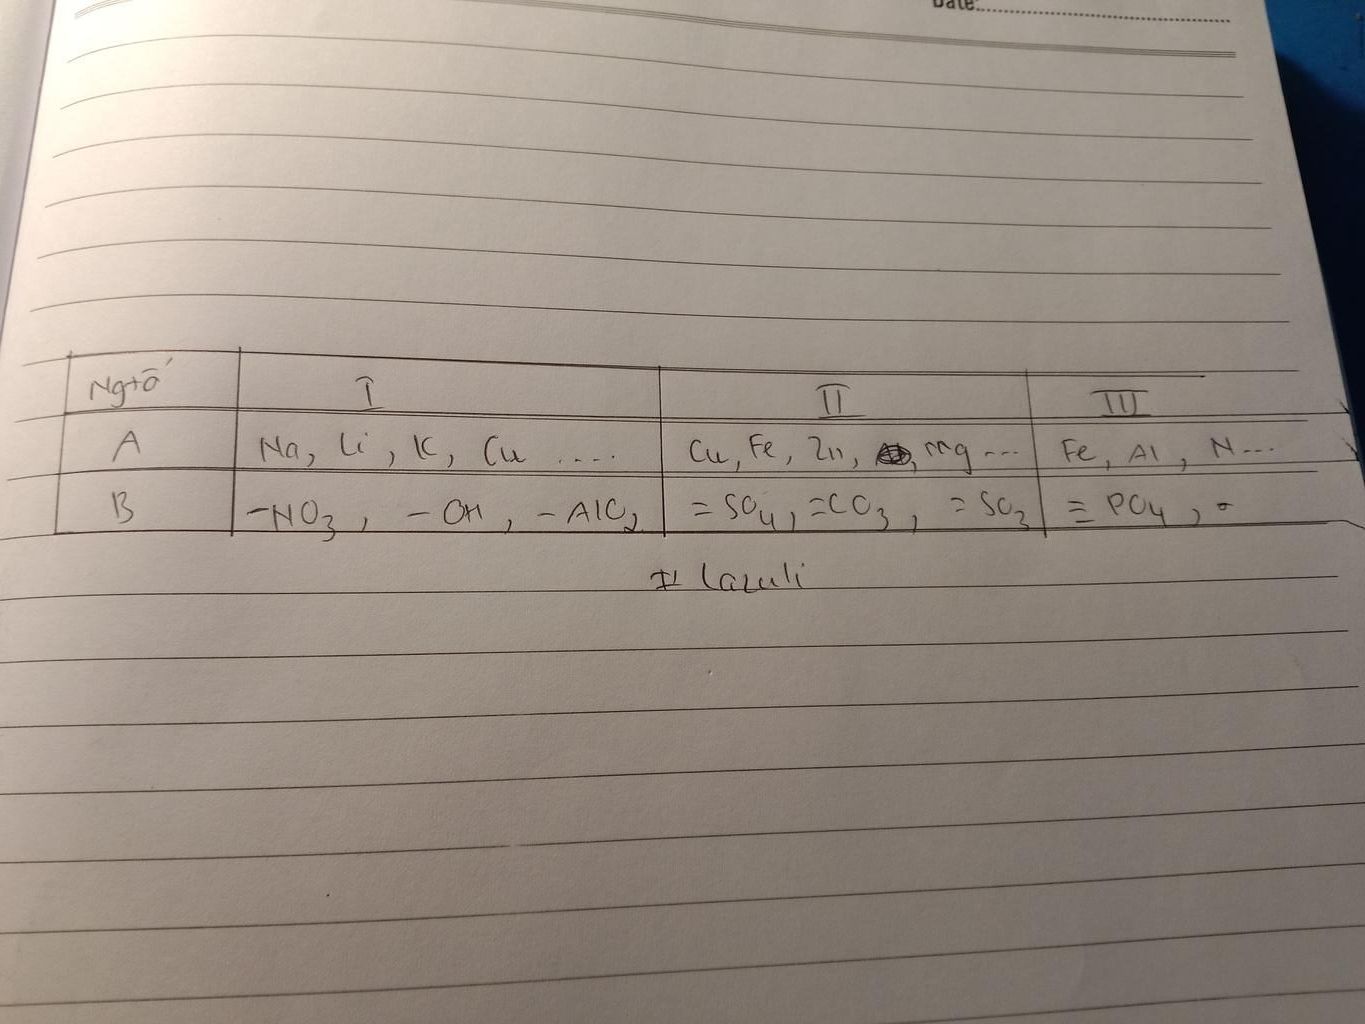 Date:
Ngtố I II III
A Na, Li, K, Cu .... Cu, Fe, Zn, , Mg ... Fe, Al, N...
B -NO3, -OH, -AlO2 =SO4, =CO3, =SO3 ≡PO4, -
# Lazuli